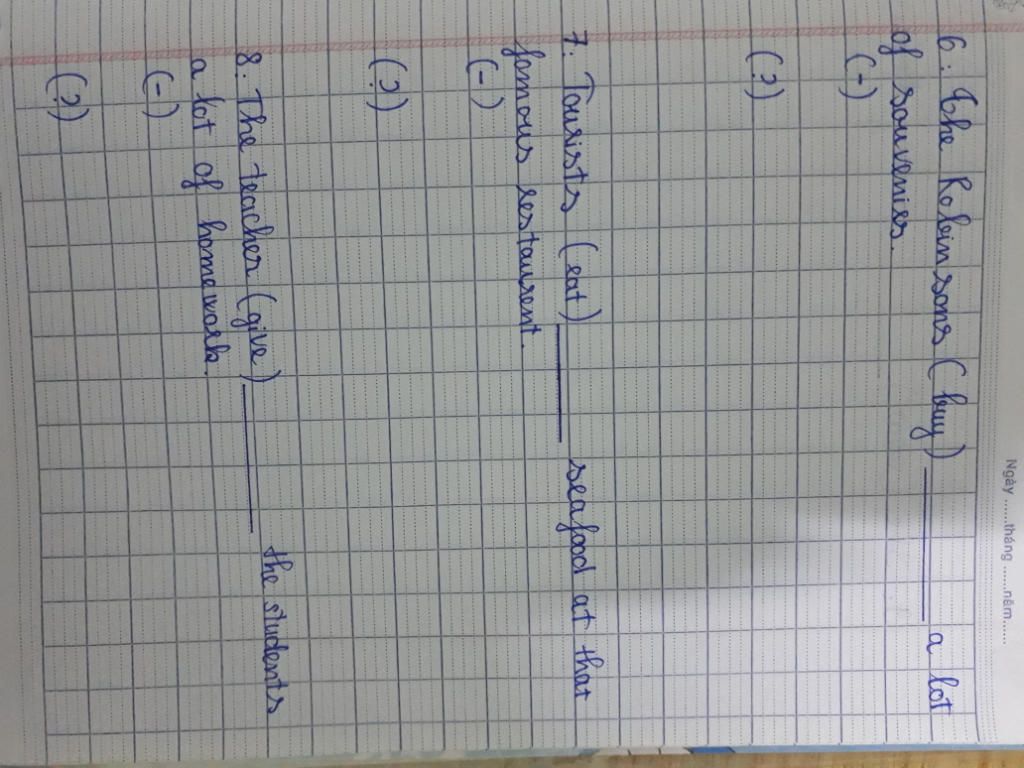 Ngày ......tháng ......năm......
6: The Robinsons (buy) ________ a lot
of souvenirs.
(-)
(?)
7: Tourists (eat) ________ seafood at that
famous restaurent.
(-)
(?)
8: The teacher (give) ________ the students
a lot of homework.
(-)
(?)